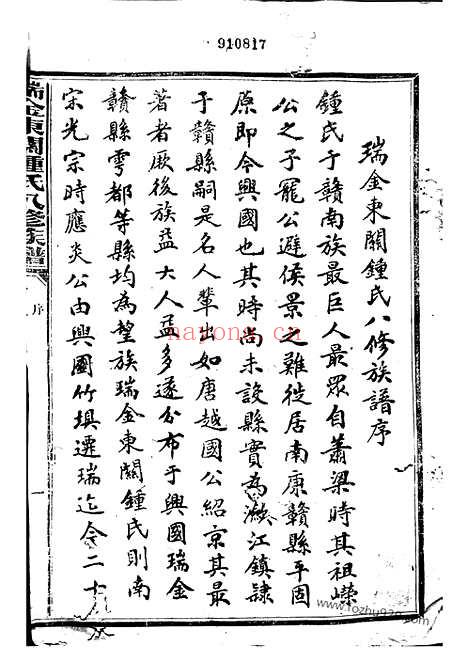 910817
瑞金東關鍾氏八修族譜序
鍾氏于贛南族最巨人最眾自蕭梁時其祖嶸
公之子寵公避侯景之難徙居南康贛縣平固
原即今興國也其時尚未設縣實為瀲江鎮隸
于贛縣嗣是名人輩出如唐越國公紹京其最
著者厥後族益大人益多遂分布于興國瑞金
贛縣雩都等縣均為望族瑞金東關鍾氏則南
宋光宗時應炎公由興國竹垻遷瑞迄今二十
瑞金東關鍾氏八修族譜
序
一
nayong.cn
www.fozhu920.com